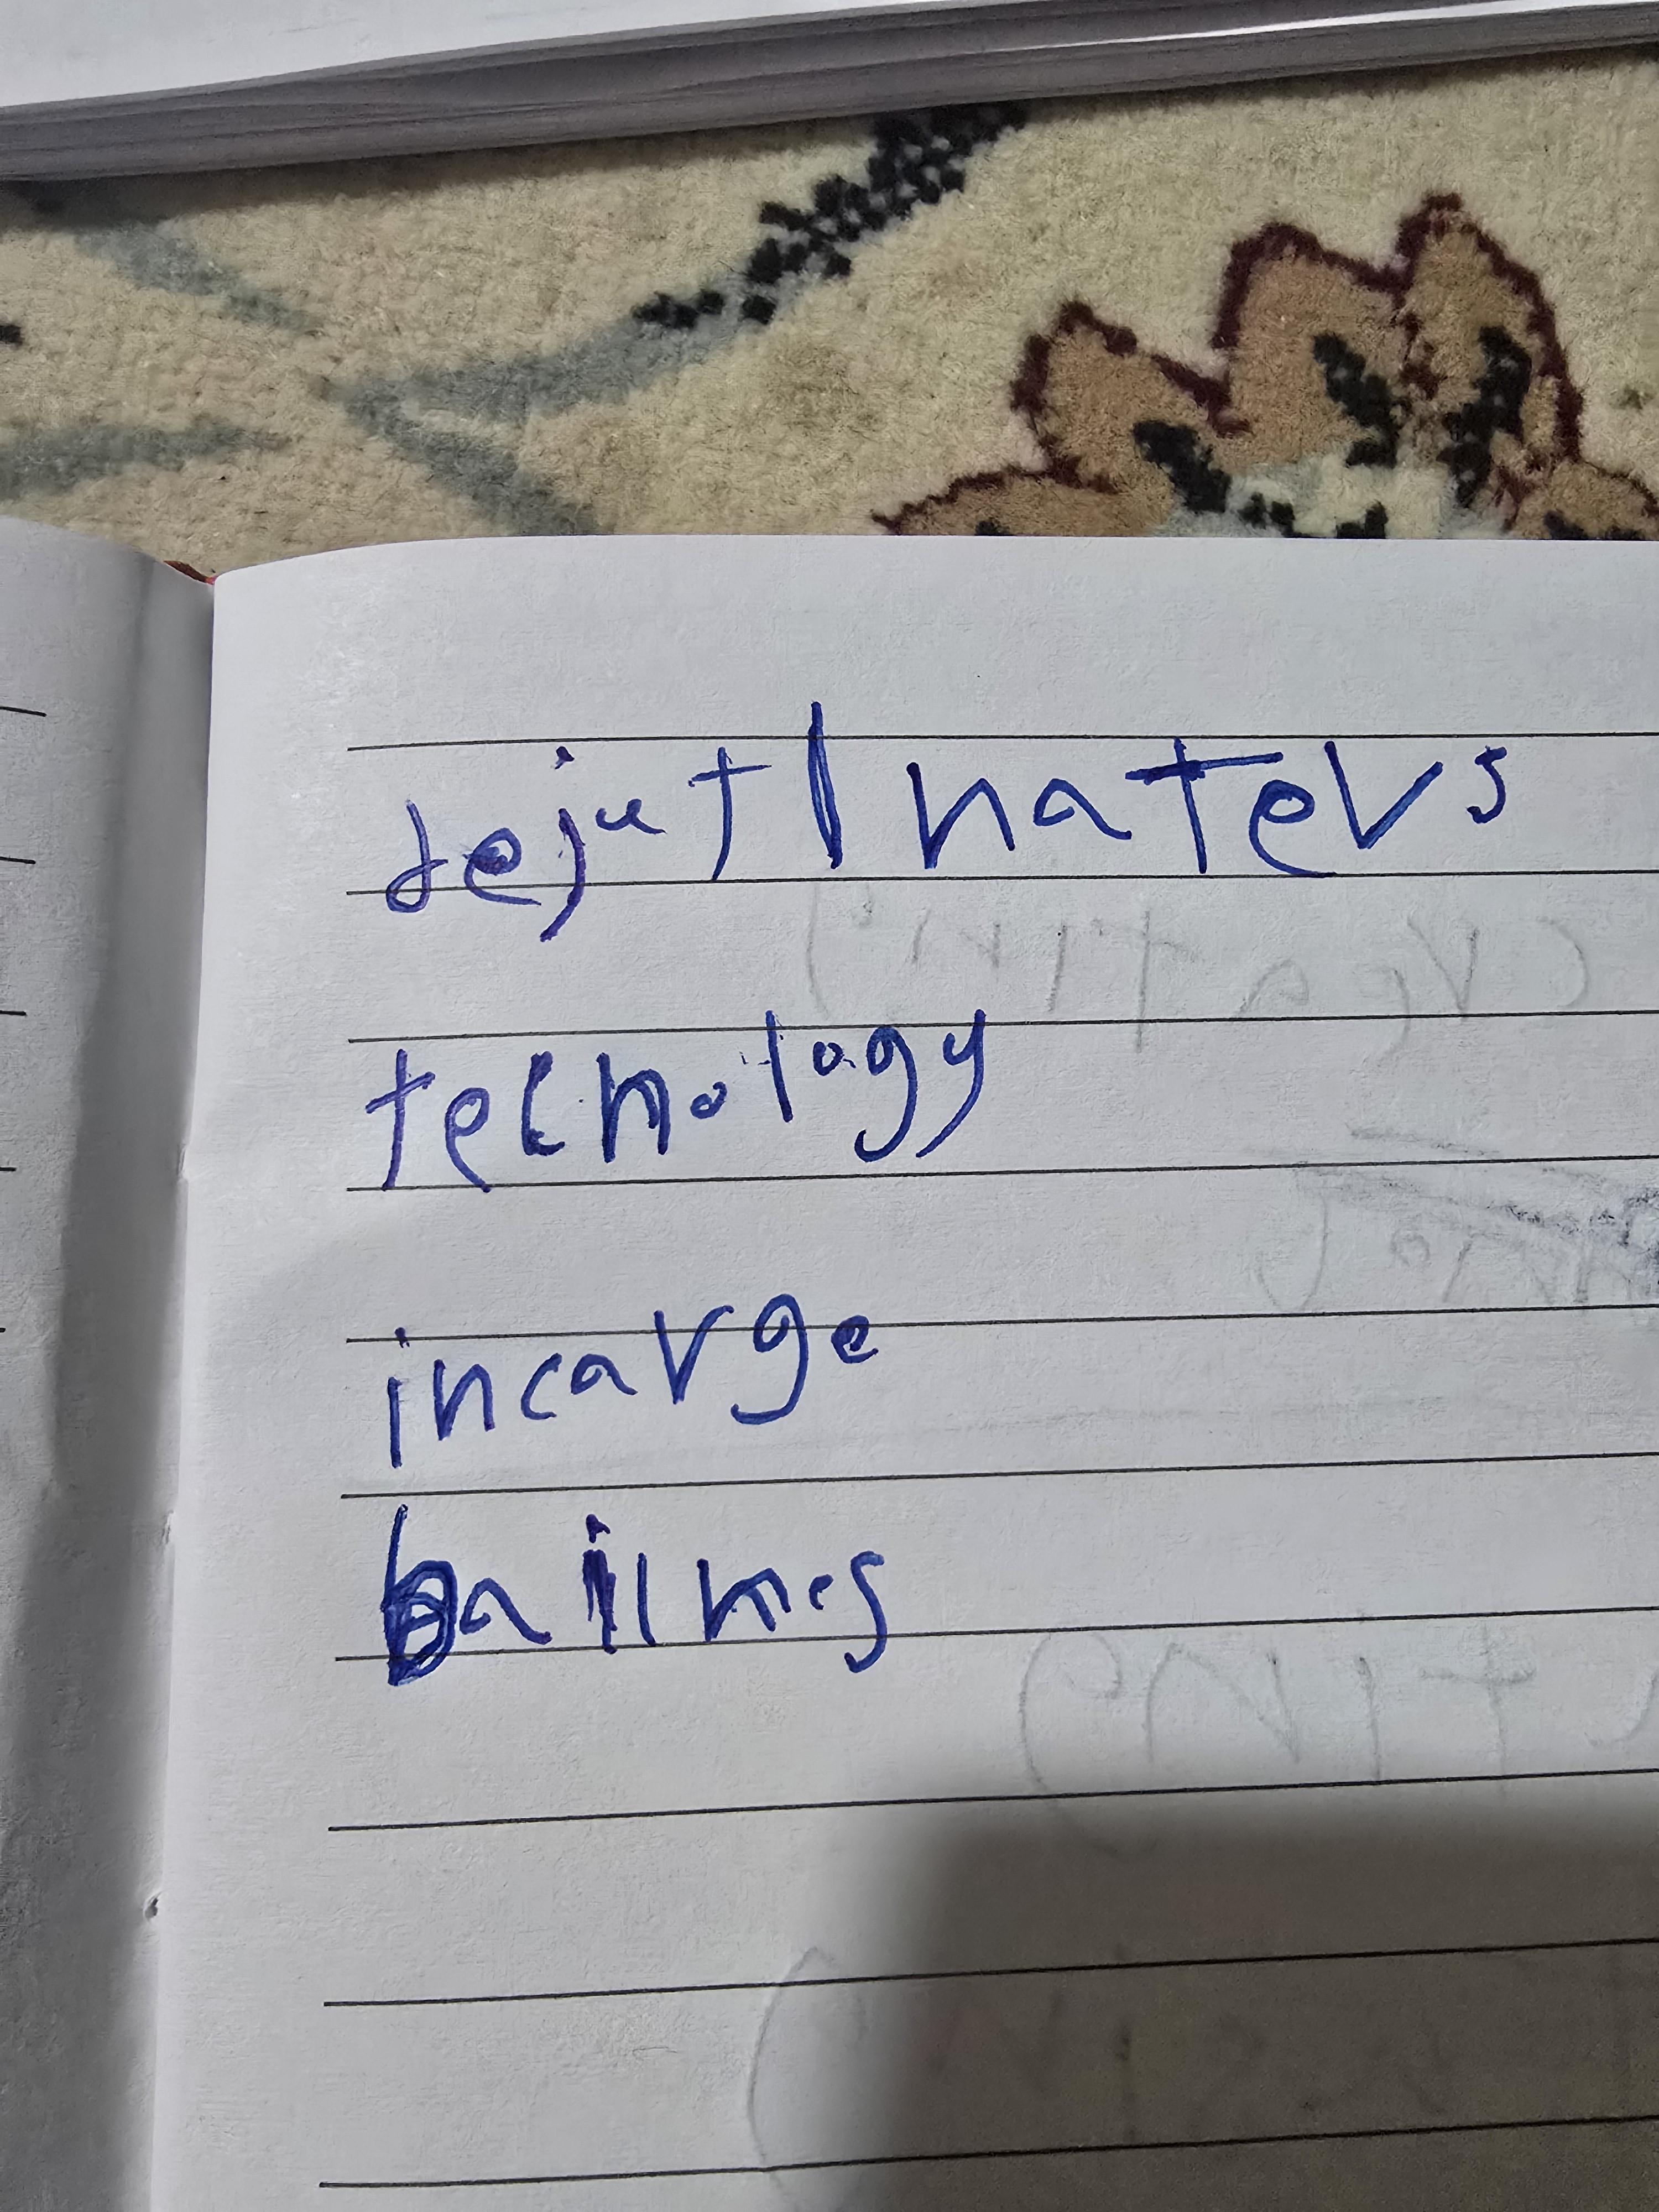 dejutlnaters
tecnology
incarge
bailmes